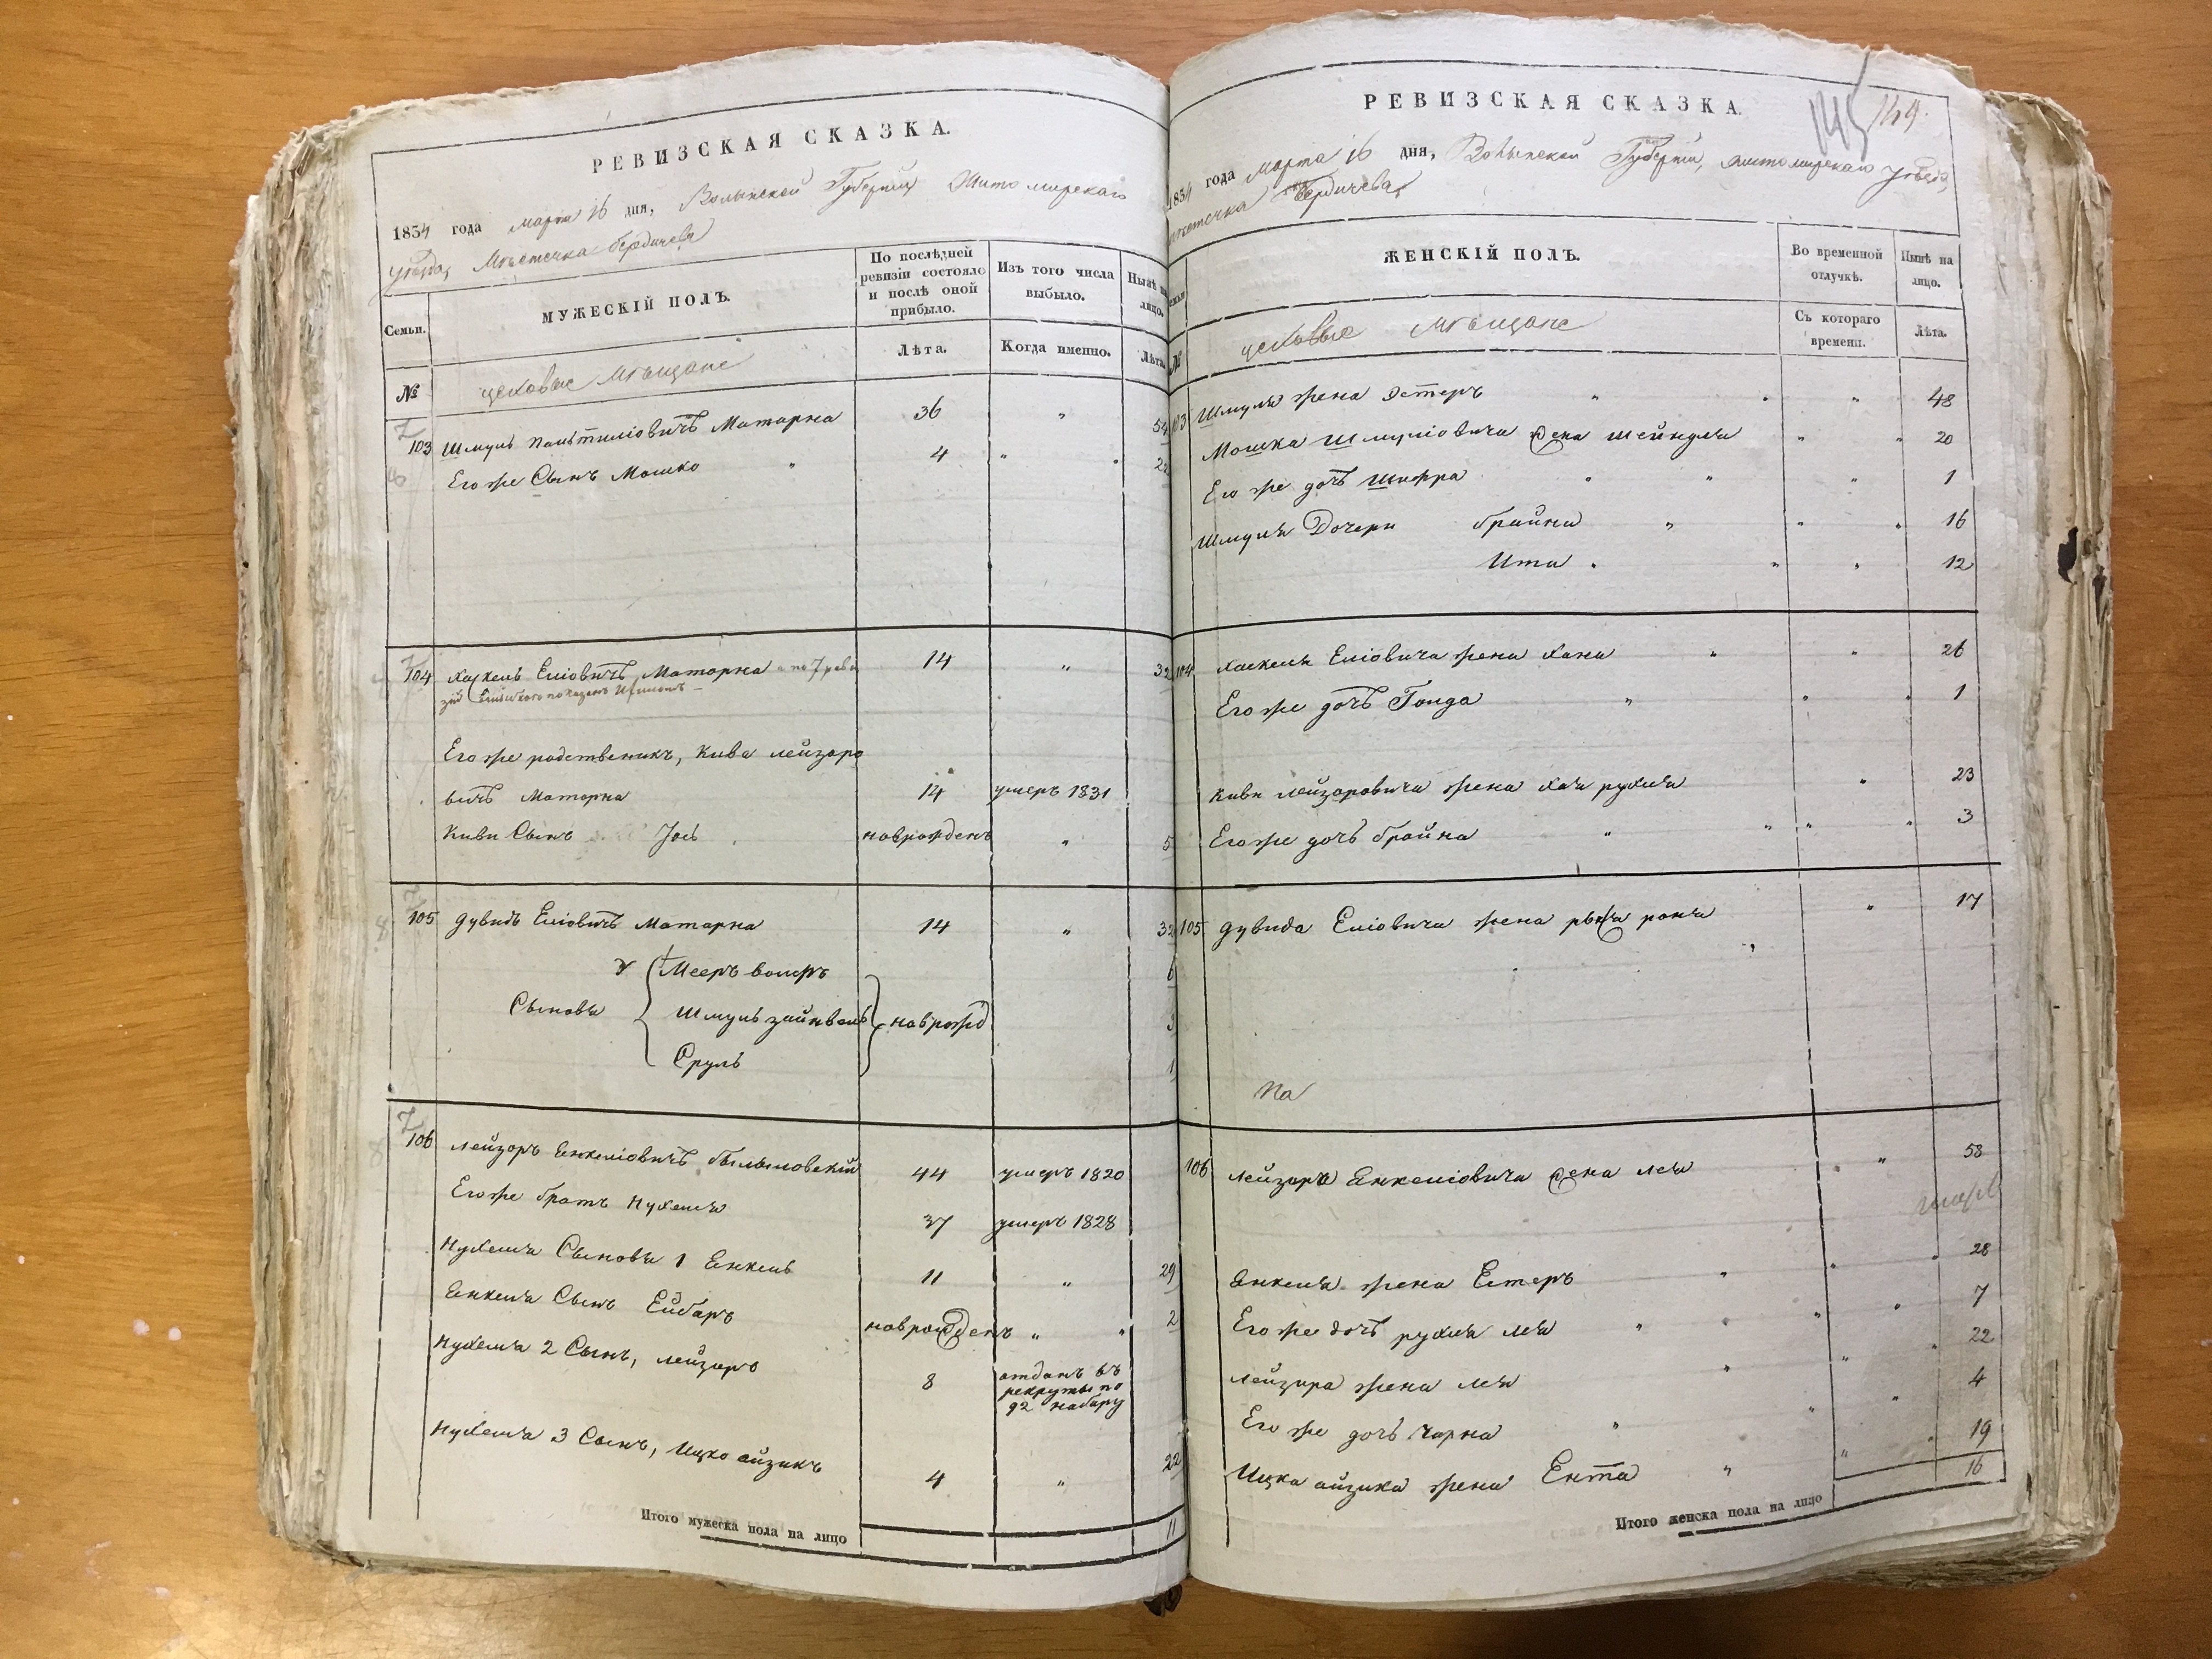 РЕВИЗСКАЯ СКАЗКА.
1834 года марта 16 дня, Волынской Губерніи Житомирскаго
уезда, Мѣстечка Бердичева
Семьи.
МУЖЕСКІЙ ПОЛЪ.
По послѣдней ревизіи состояло и послѣ оной прибыло.
Изъ того числа выбыло.
Нынѣ на лицо.
№
Лѣта.
Когда именно.
Лѣта
цеховые мѣщане
103 Шмуль Мошкa Маторна 36 „ 54
Его же Сынъ Мошко „ 4 „ 22
104 Хаскель Еліовичъ Маторна 14 „ 32
Его же родственикъ, Кива лейзоро
вичъ Маторна 14 умеръ 1831
Киви Сынъ Іось новрожденъ „ 5
105 дувидъ Еліовичъ Маторна 14 „ 32
Мееръ волфъ 6
Сыновья Шмуль зайнвель новрожд 3
Сруль 1
106 лейзоръ Енкеліовичъ 44 умеръ 1820
Его же братъ Нухемъ 37 умеръ 1828
Нухема Сыновья 1 Енкель 11 „ 29
Енкеля Сынъ новрожденъ „ 2
Нухема 2 Сынъ, лейзоръ 8 отданъ въ
рекруты по
92 набору
Нухема 3 Сынъ, Ицко айзикъ 4 „ 22
Итого мужеска пола на лицо 11
РЕВИЗСКАЯ СКАЗКА.
145 149.
1834 года марта 16 дня, Волынской Губерніи, житомирскаго уѣзда,
мѣстечка Бердичева
ЖЕНСКІЙ ПОЛЪ.
Во временной отлучкѣ.
Нынѣ на лицо.
№
Съ котораго времени.
Лѣта.
цеховые мѣщане
103 Шмуля жена Эстеръ „ „ 48
Мошка Шмуліовича жена шейндля „ 20
Его же дочь Шифра „ „ 1
Шмуля Дочери брайна „ 16
Ита „ 12
104 хаскеля Еліовича жена хана „ „ 26
Его же дочь „ 1
Киви лейзоровича жена хая рухля „ 23
Его же дочь брайна „ „ 3
105 дувида Еліовича жена „ 17
На
106 лейзора Енкеліовича жена лея „ 58
Енкеля жена Естеръ „ 28
Его же дочь рухля лея „ 7
лейзора жена лея „ 22
Его же дочь чарна „ 4
Ицка айзика жена Ента „ 19
Итого женска пола на лицо 16